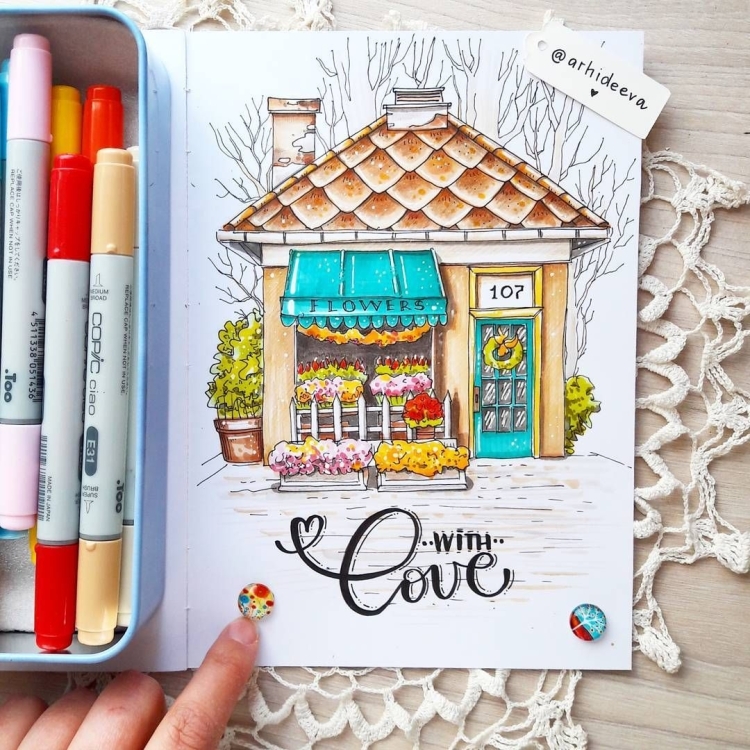 @arhideeva
FLOWERS
107
..WITH..
Love
REPLACE CAP WHEN NOT IN USE
4 511338 051436
.Too
MEDIUM
BROAD
COPIC ciao
E31
SUPER
BRUSH
.Too
MADE IN JAPAN